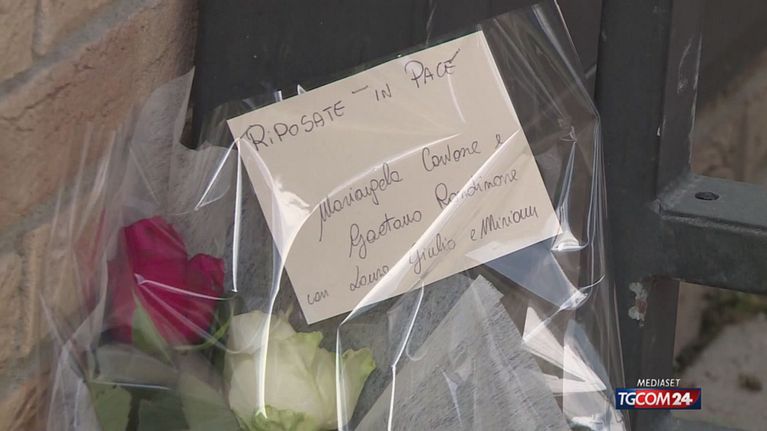 RIPOSATE - IN PACE
Mariangela Carbone e
Gaetano Randimone
con Laura Giulio e Miriam
MEDIASET
TGCOM24